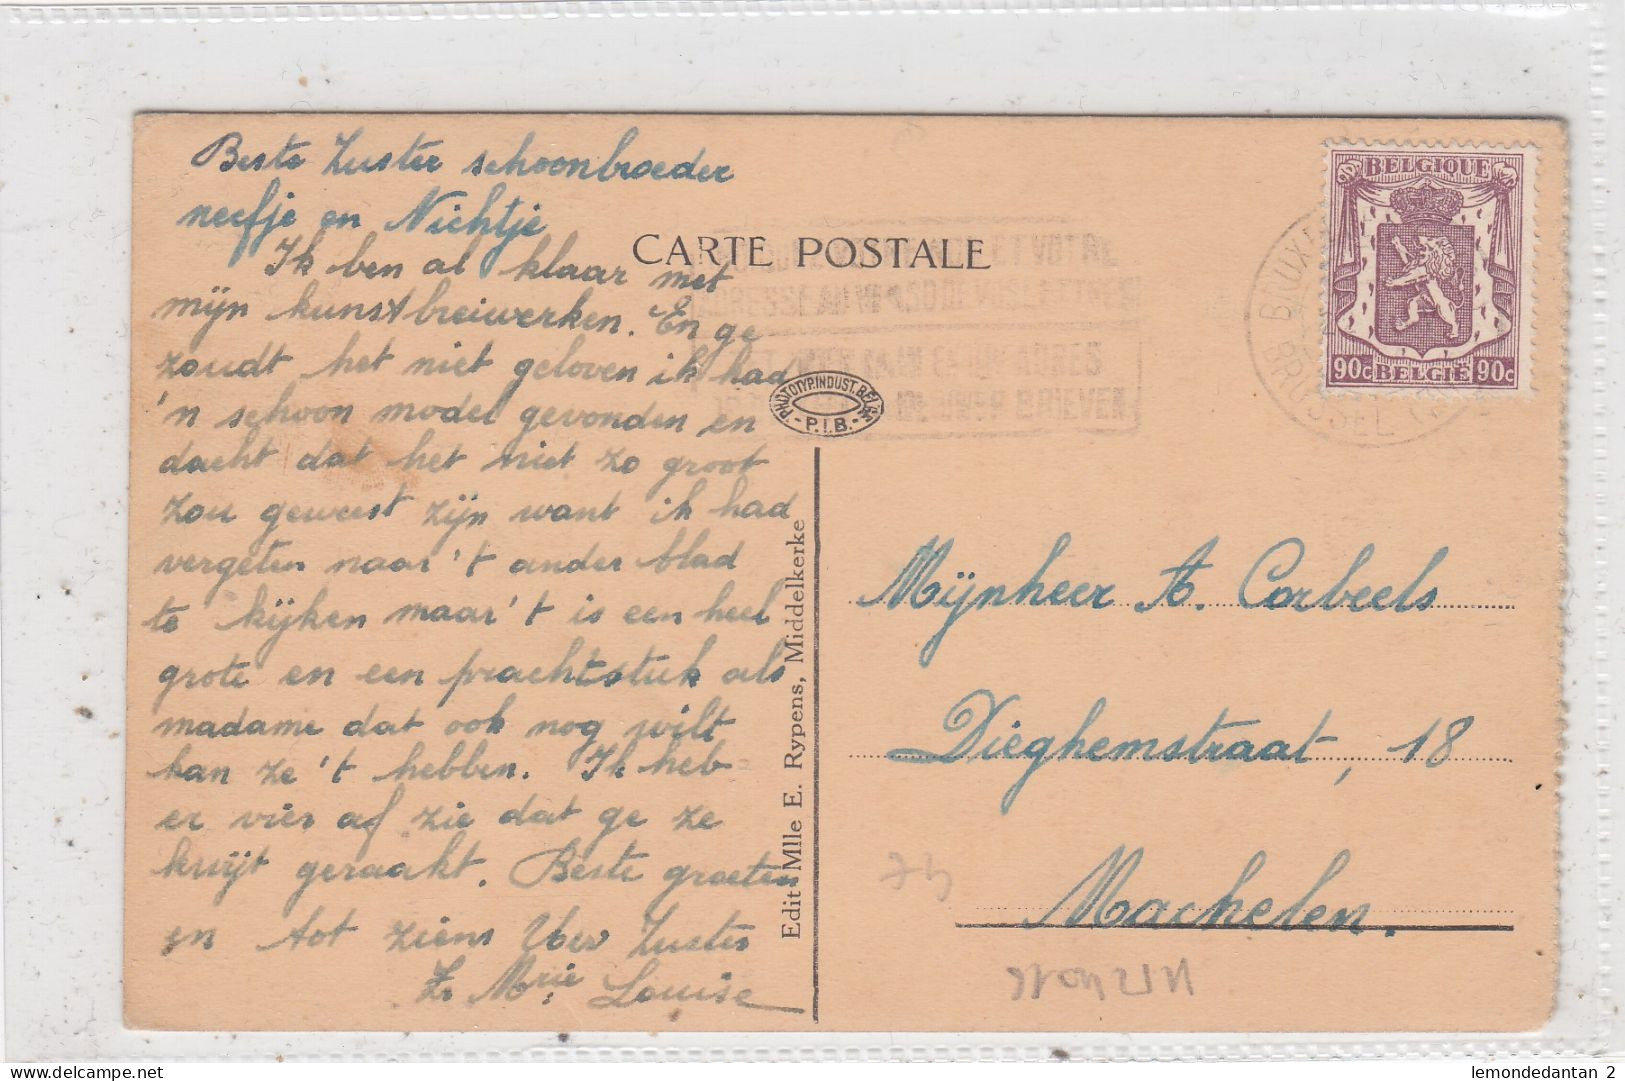 Beste Zuster schoonbroeder
neefje en Nichtje
Ik ben al klaar met
mijn kunstbreiwerken. En ge
zoudt het niet geloven ik had
'n schoon model gevonden en
dacht dat het niet zo groot
zou geweest zijn want ik had
vergeten naar 't ander blad
te kijken maar 't is een heel
grote en een prachtstuk als
madame dat ook nog wilt
kan ze 't hebben. Ik heb
er vier af zie dat ge ze
kwijt geraakt. Beste groeten
en tot ziens Uw Zuster
Zr Mrie Louise
CARTE POSTALE
ET VOTRE
ADRES
BRIEVEN
PHOTOTYP. INDUST. BELGE
- P.I.B. -
Edit Mlle E. Rypens, Middelkerke
BELGIQUE
90c BELGIË 90c
BRUXE
BRUSSEL
Mijnheer A. Corbeels
Dieghemstraat, 18
Machelen.
lemondedantan 2